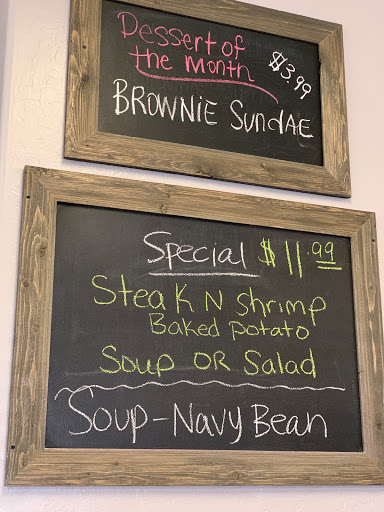 Dessert of
the Month
$3.99
BROWNIE SundAE
Special $11.99
Steak N Shrimp
Baked Potato
Soup OR Salad
Soup-Navy Bean